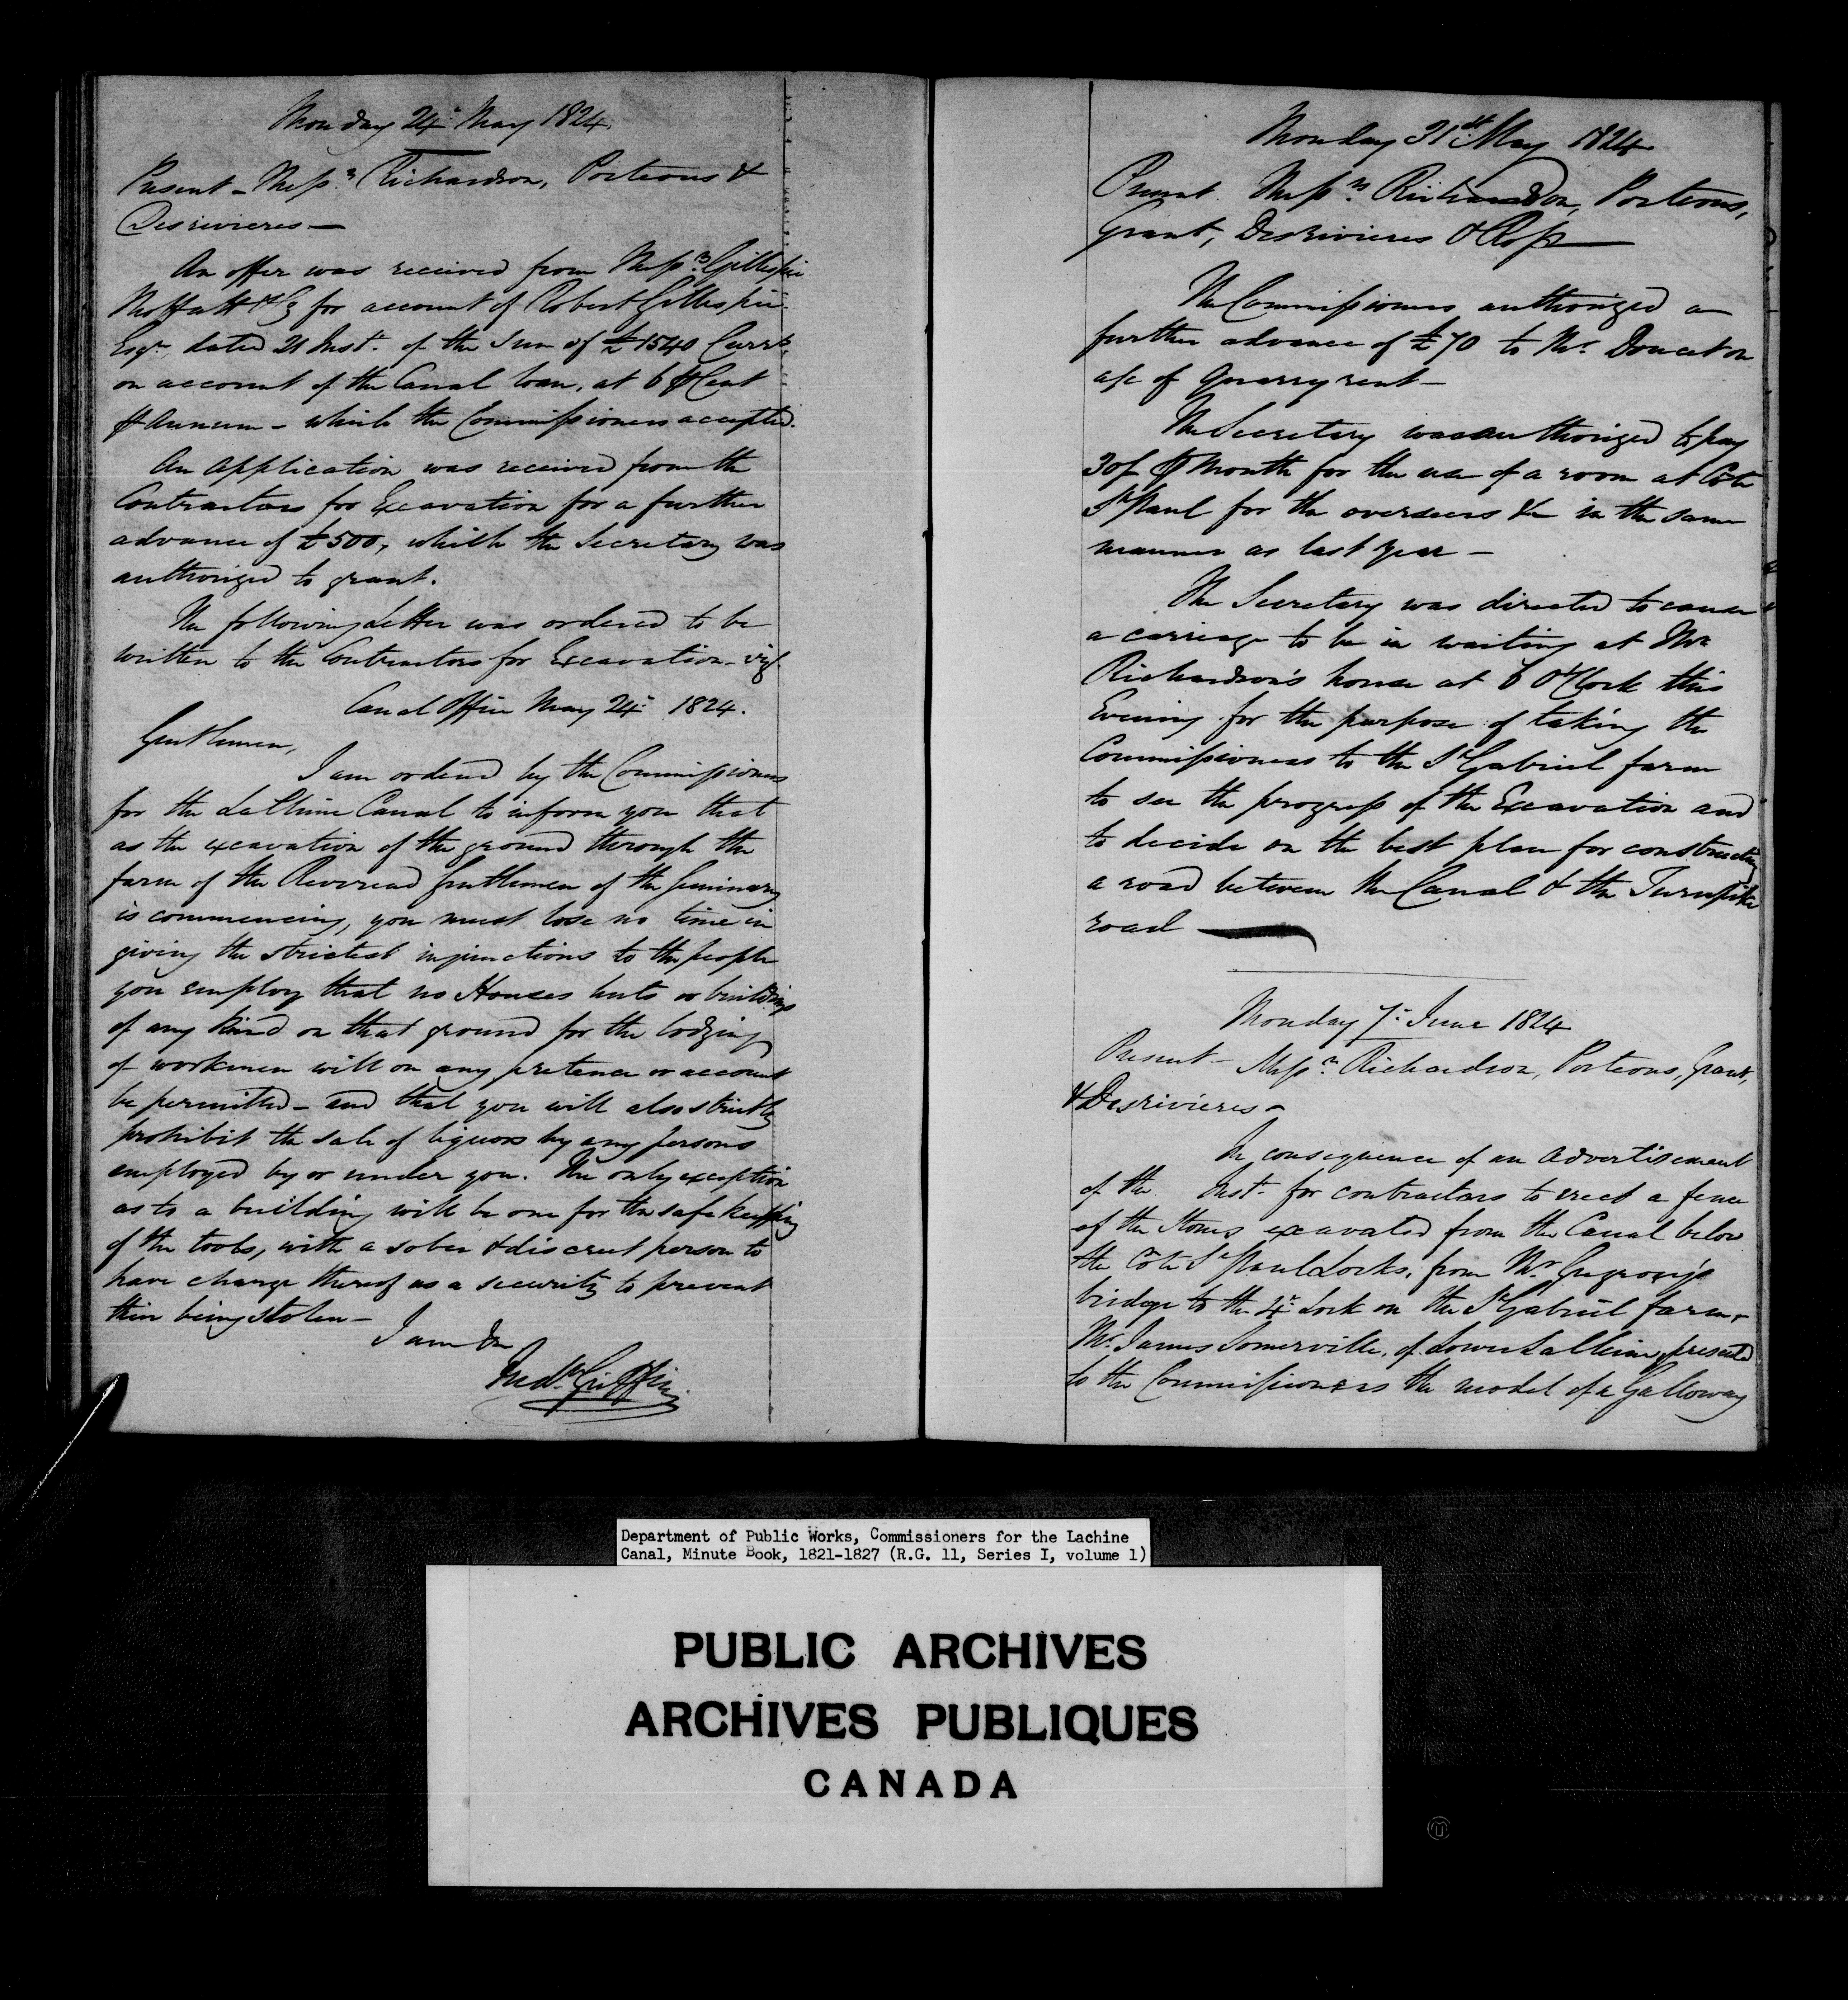 Monday 24th May 1824.
Present – Messrs Richardson, Porteous &
Desrivieres —
An offer was received from Messrs Gillespie
Moffatt & Co for account of Robert Gillespie
Esqr dated 21 Inst. of the Sum of £1540 Curry
on account of the Canal loan, at 6 ⅌ Cent
⅌ Annum – which the Commissioners accepted.
An Application was received from the
Contractors for Excavation for a further
advance of £500, which the Secretary was
authorized to grant.
The following Letter was ordered to be
written to the Contractors for Excavation – viz
Canal Office May 24th 1824.
Gentlemen,
I am ordered by the Commissioners
for the La Chine Canal to inform you that
as the excavation of the ground through the
farm of the Reverend Gentlemen of the Seminary
is commencing, you must lose no time in
giving the strictest injunctions to the people
you employ that no Houses huts or buildings
of any kind on that ground for the lodging
of workmen will on any pretence or account
be permitted – and that you will also strictly
prohibit the sale of liquors by any persons
employed by or under you. The only exception
as to a building will be one for the safe keeping
of the tools, with a sober & discreet person to
have charge thereof as a security to prevent
their being stolen –
I am &c
Fredk Griffin
Monday 31st May 1824
Present Messrs Richardson, Porteous,
Grant, Desrivieres & Ross
The Commissioners authorized a
further advance of £70 to Mr Doucet on
a/c of Quarry rent –
The Secretary was authorized to pay
30/ ⅌ month for the use of a room at Côte
St Paul for the overseers &c in the same
manner as last year –
The Secretary was directed to cause
a carriage to be in waiting at Mr
Richardson's house at 6 O'Clock this
Evening for the purpose of taking the
Commissioners to the St Gabriel farm
to see the progress of the Excavation and
to decide on the best plan for constructing
a road between the Canal & the Turnpike
road
Monday 7th June 1824
Present – Messrs Richardson, Porteous, Grant,
& Desrivieres –
In consequence of an Advertisement
of the Inst. for contractors to erect a fence
of the Stones excavated from the Canal below
the Côte St Paul Locks, from Mr
bridge to the 4th Lock on the St Gabriel farm,
Mr James Somerville, of Lower La Chine, presented
to the Commissioners the model of a Galloway
Department of Public Works, Commissioners for the Lachine
Canal, Minute Book, 1821-1827 (R.G. 11, Series I, volume 1)
PUBLIC ARCHIVES
ARCHIVES PUBLIQUES
CANADA